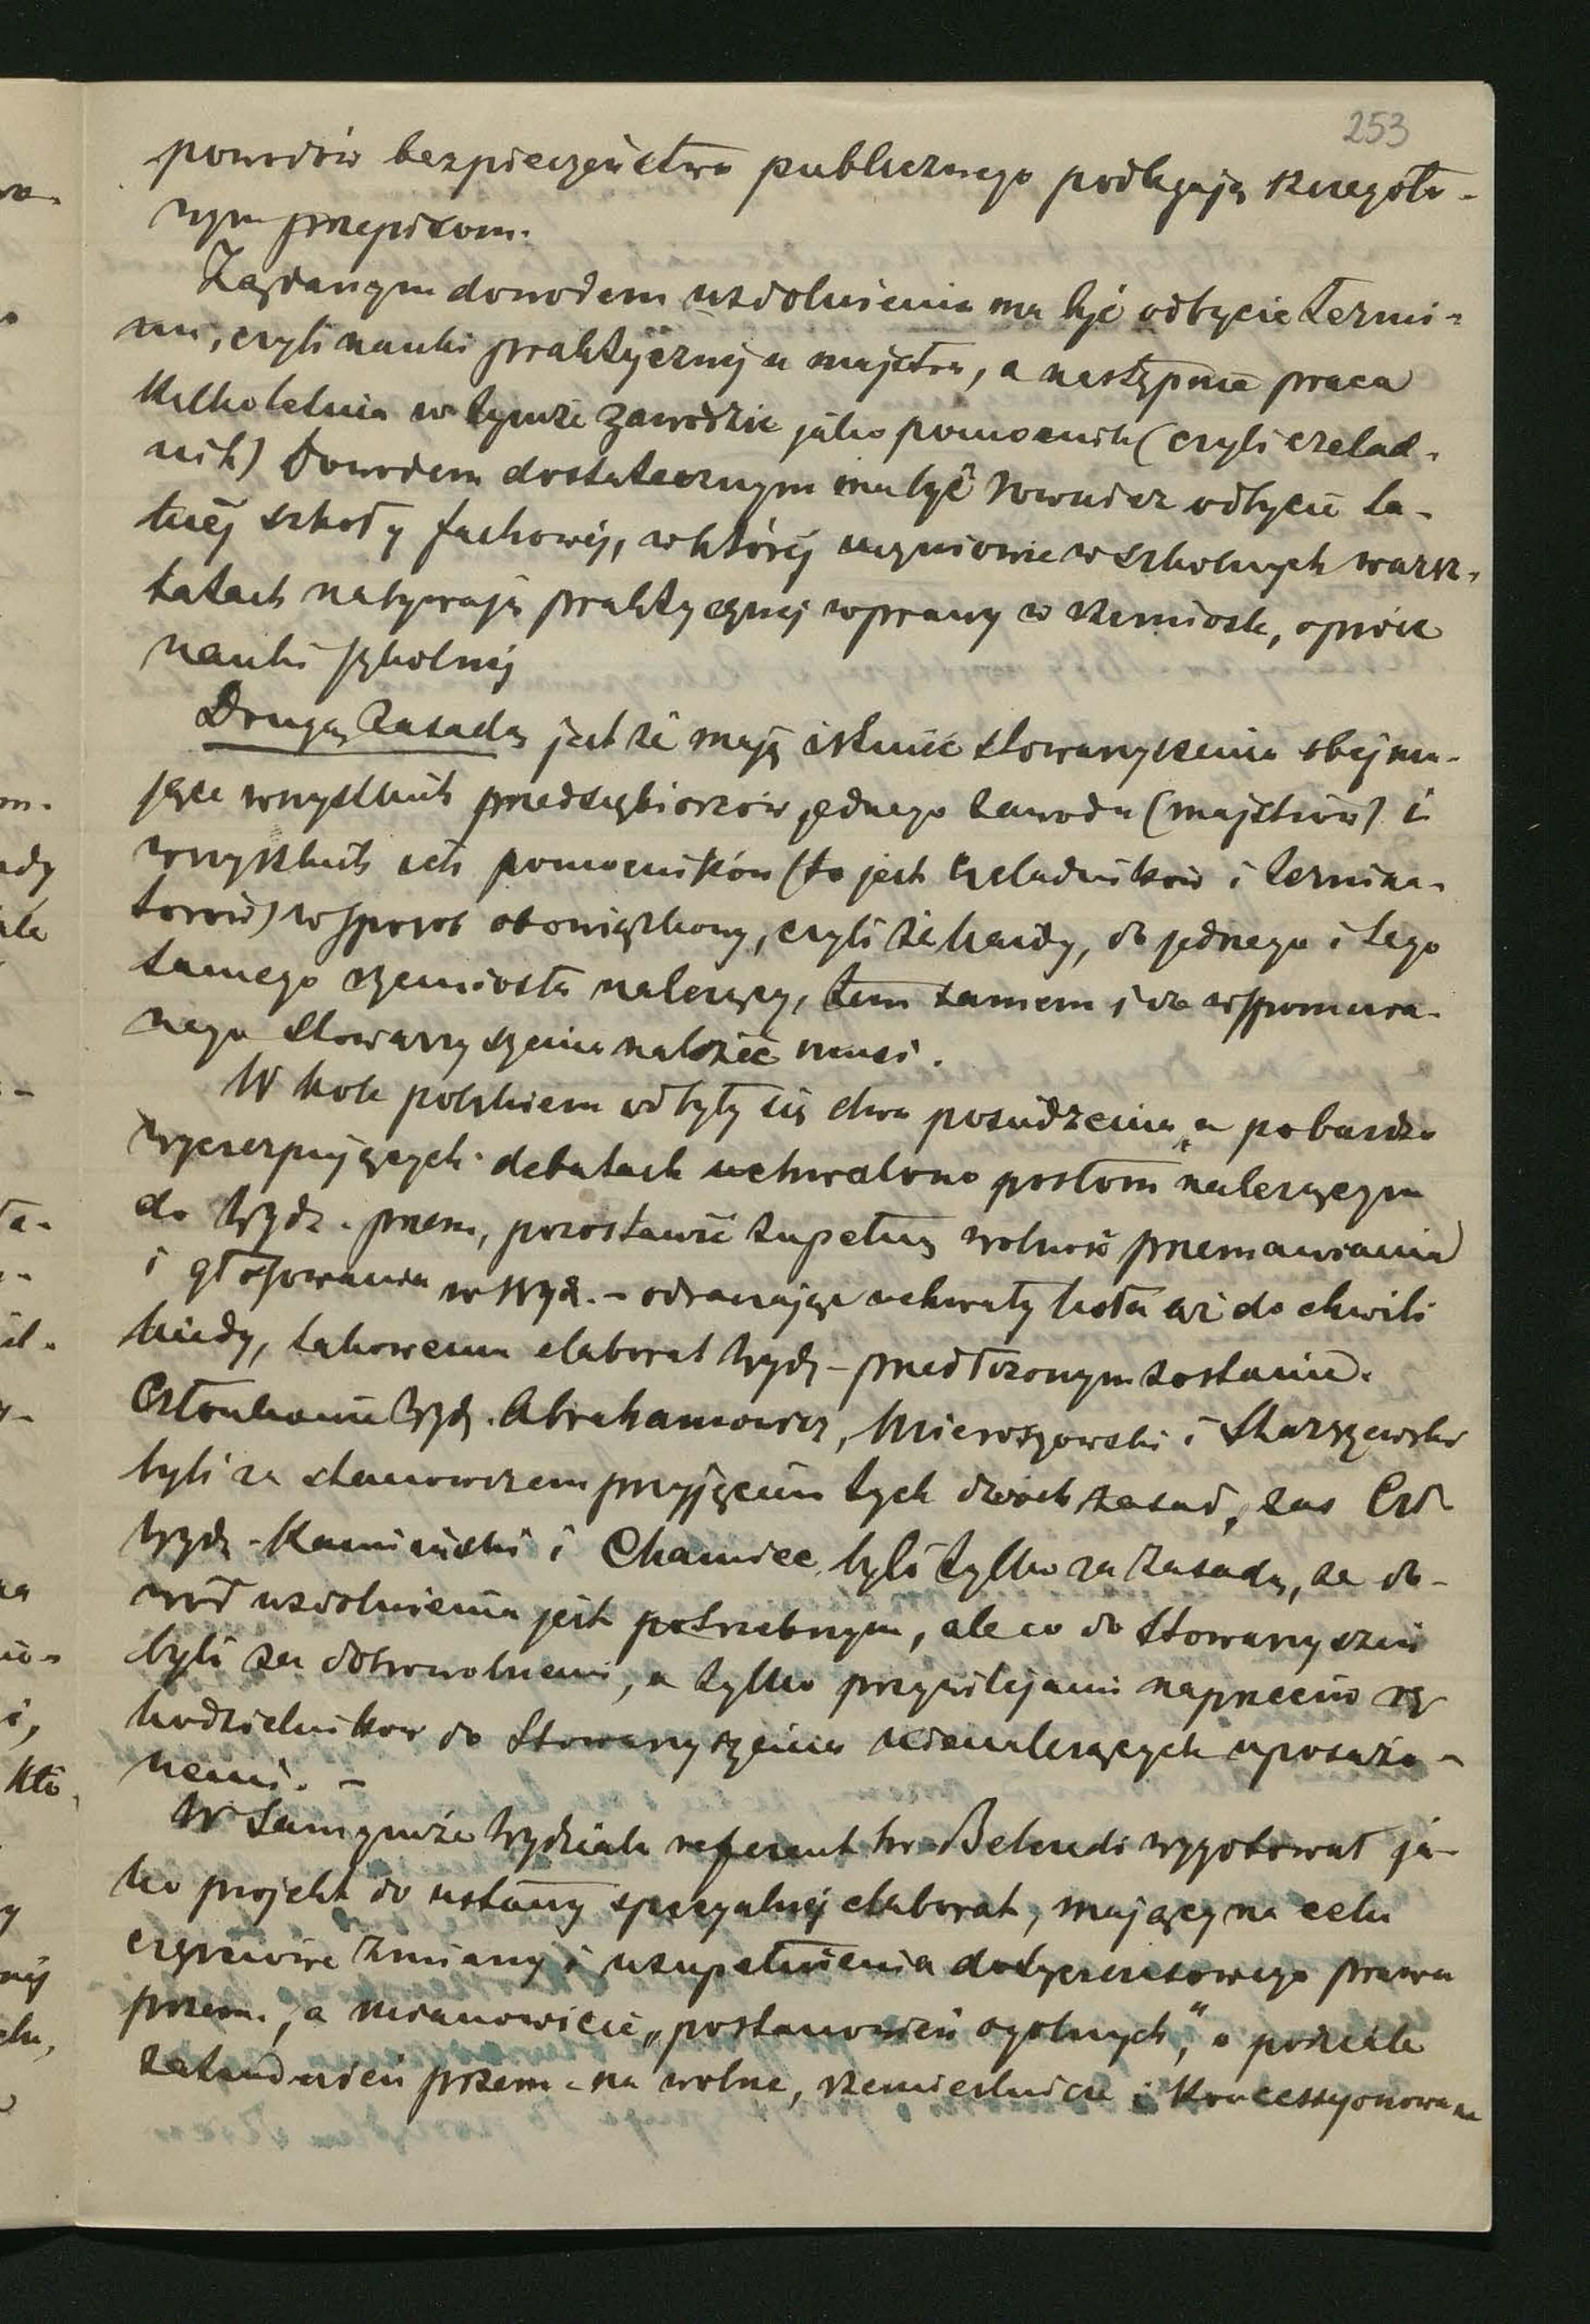 253
powodów bezpieczeństwa publicznego podlegają szczegóło-
wym przepisom.
Żądanym dowodem uzdolnienia ma być odbycie termi-
nu, czyli nauki praktycznej u majstra, a następnie praca
kilkoletnia w tymże zawodzie jako pomocnik (czyli czelad-
nik) Dowodem dostatecznym ma być również odbycie ta-
kiéj szkoły fachowéj, w któréj uczniowie w szkolnych warsz-
tatach nabywają praktycznej wprawy w rzemiośle, oprócz
nauki szkolnéj
Drugą zasadą jest że mają istnieć stowarzyszenia obejmu-
jące wszystkich przedsiębiorców jednego zawodu (majstrów) i
wszystkich ich pomocników (to jest czeladników i termina-
torów) w sposób obowiązkowy, czyli że każdy, do jednego i tego
samego rzemiosła należący, tem samem i do wspomnia-
nego stowarzyszenia należeć musi.
W kole polskiem odbyły się dwa posiedzenia, a po bardzo
wyczerpujących debatach uchwalono posłom należącym
do Wydz. przem, pozostawić zupełną wolność przemawiania
i głosowania w Wydz. – odraczając uchwały koła aż do chwili
kiedy, takowemu elaborat Wydz – przedłożonym zostanie.
Członkowie Wydz. Abrahamowicz, Mieroszowski i Skarszewski
byli za stanowczem przyjęciem tych dwóch zasad, zaś Czł
Wydz. Kamiński i Chamiec byli tylko za zasadą, że do-
wód uzdolnienia jest potrzebnym, ale co do Stowarzyszeń
byli za dobrowolnemi, a tylko przywilejami naprzeciw rę
kodzielników do Stowarzyszenia nienależących uposażo-
nemi. –
W samymże Wydziale referent hr Belcredi wygotował ja-
ko projekt do ustawy specyalnéj elaborat, mający na celu
częściowe zmiany i uzupełnienia dotychczasowego prawa
przem., a mianowicie „postanowień ogólnych“, o podziale
zatrudnień przem. na wolne, rzemieślnicze i koncessyonowane